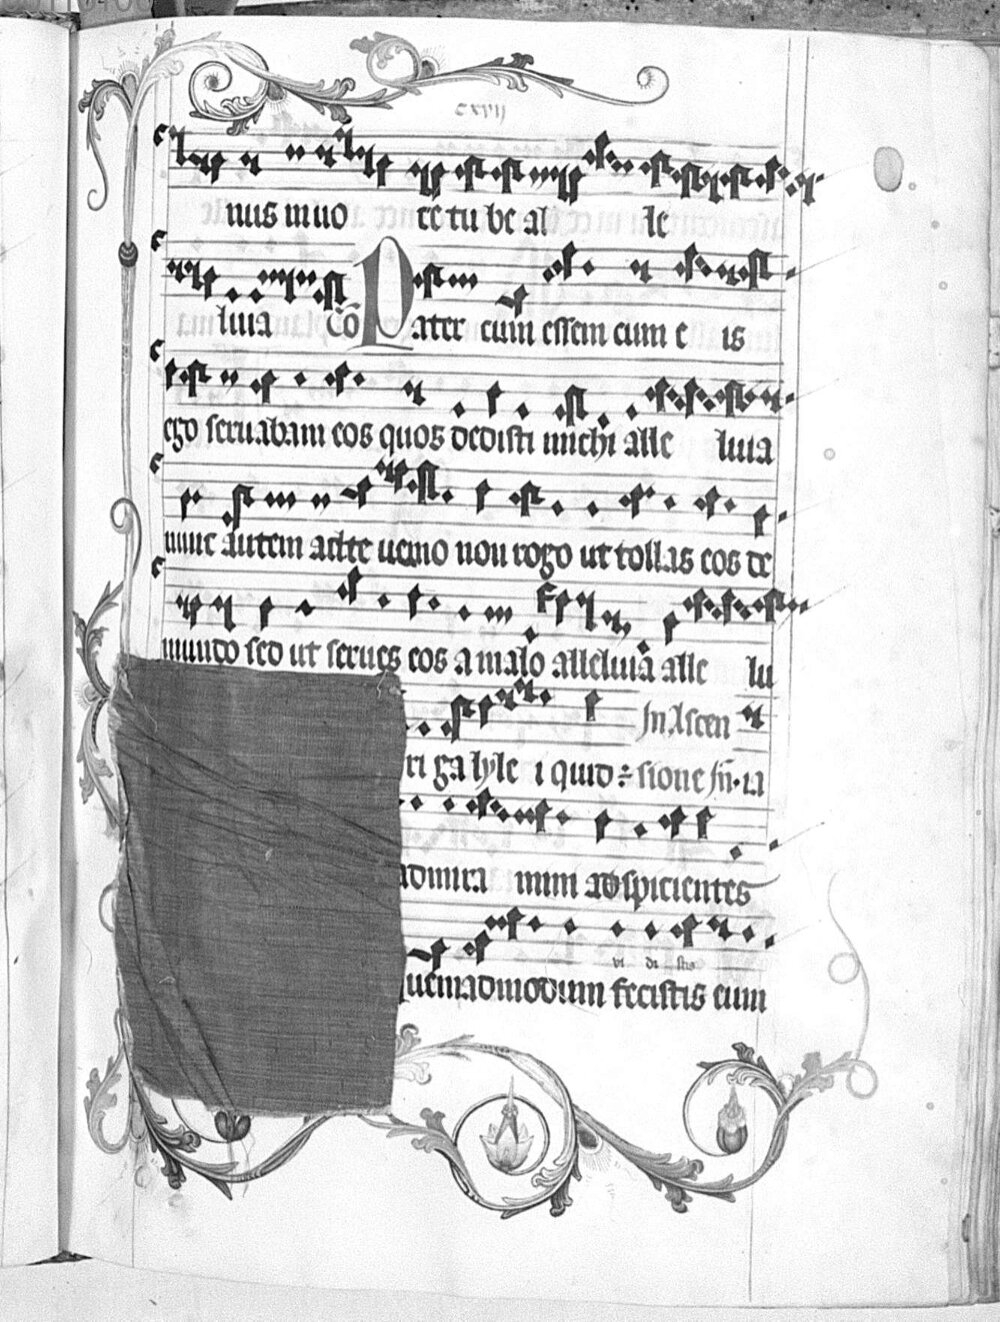 cxvij
nus in uo ce tu be al le
luia Cō Pater cum essem cum e is
ego seruabam eos quos dedisti michi alle luia
nunc autem ad te uenio non rogo ut tollas eos de
mundo sed ut serues eos a malo alleluia alle lu
ri ga lyle i quid sione
In Ascen ia
admira mini adspicientes
vi di stis
quemadmodum fecistis eum